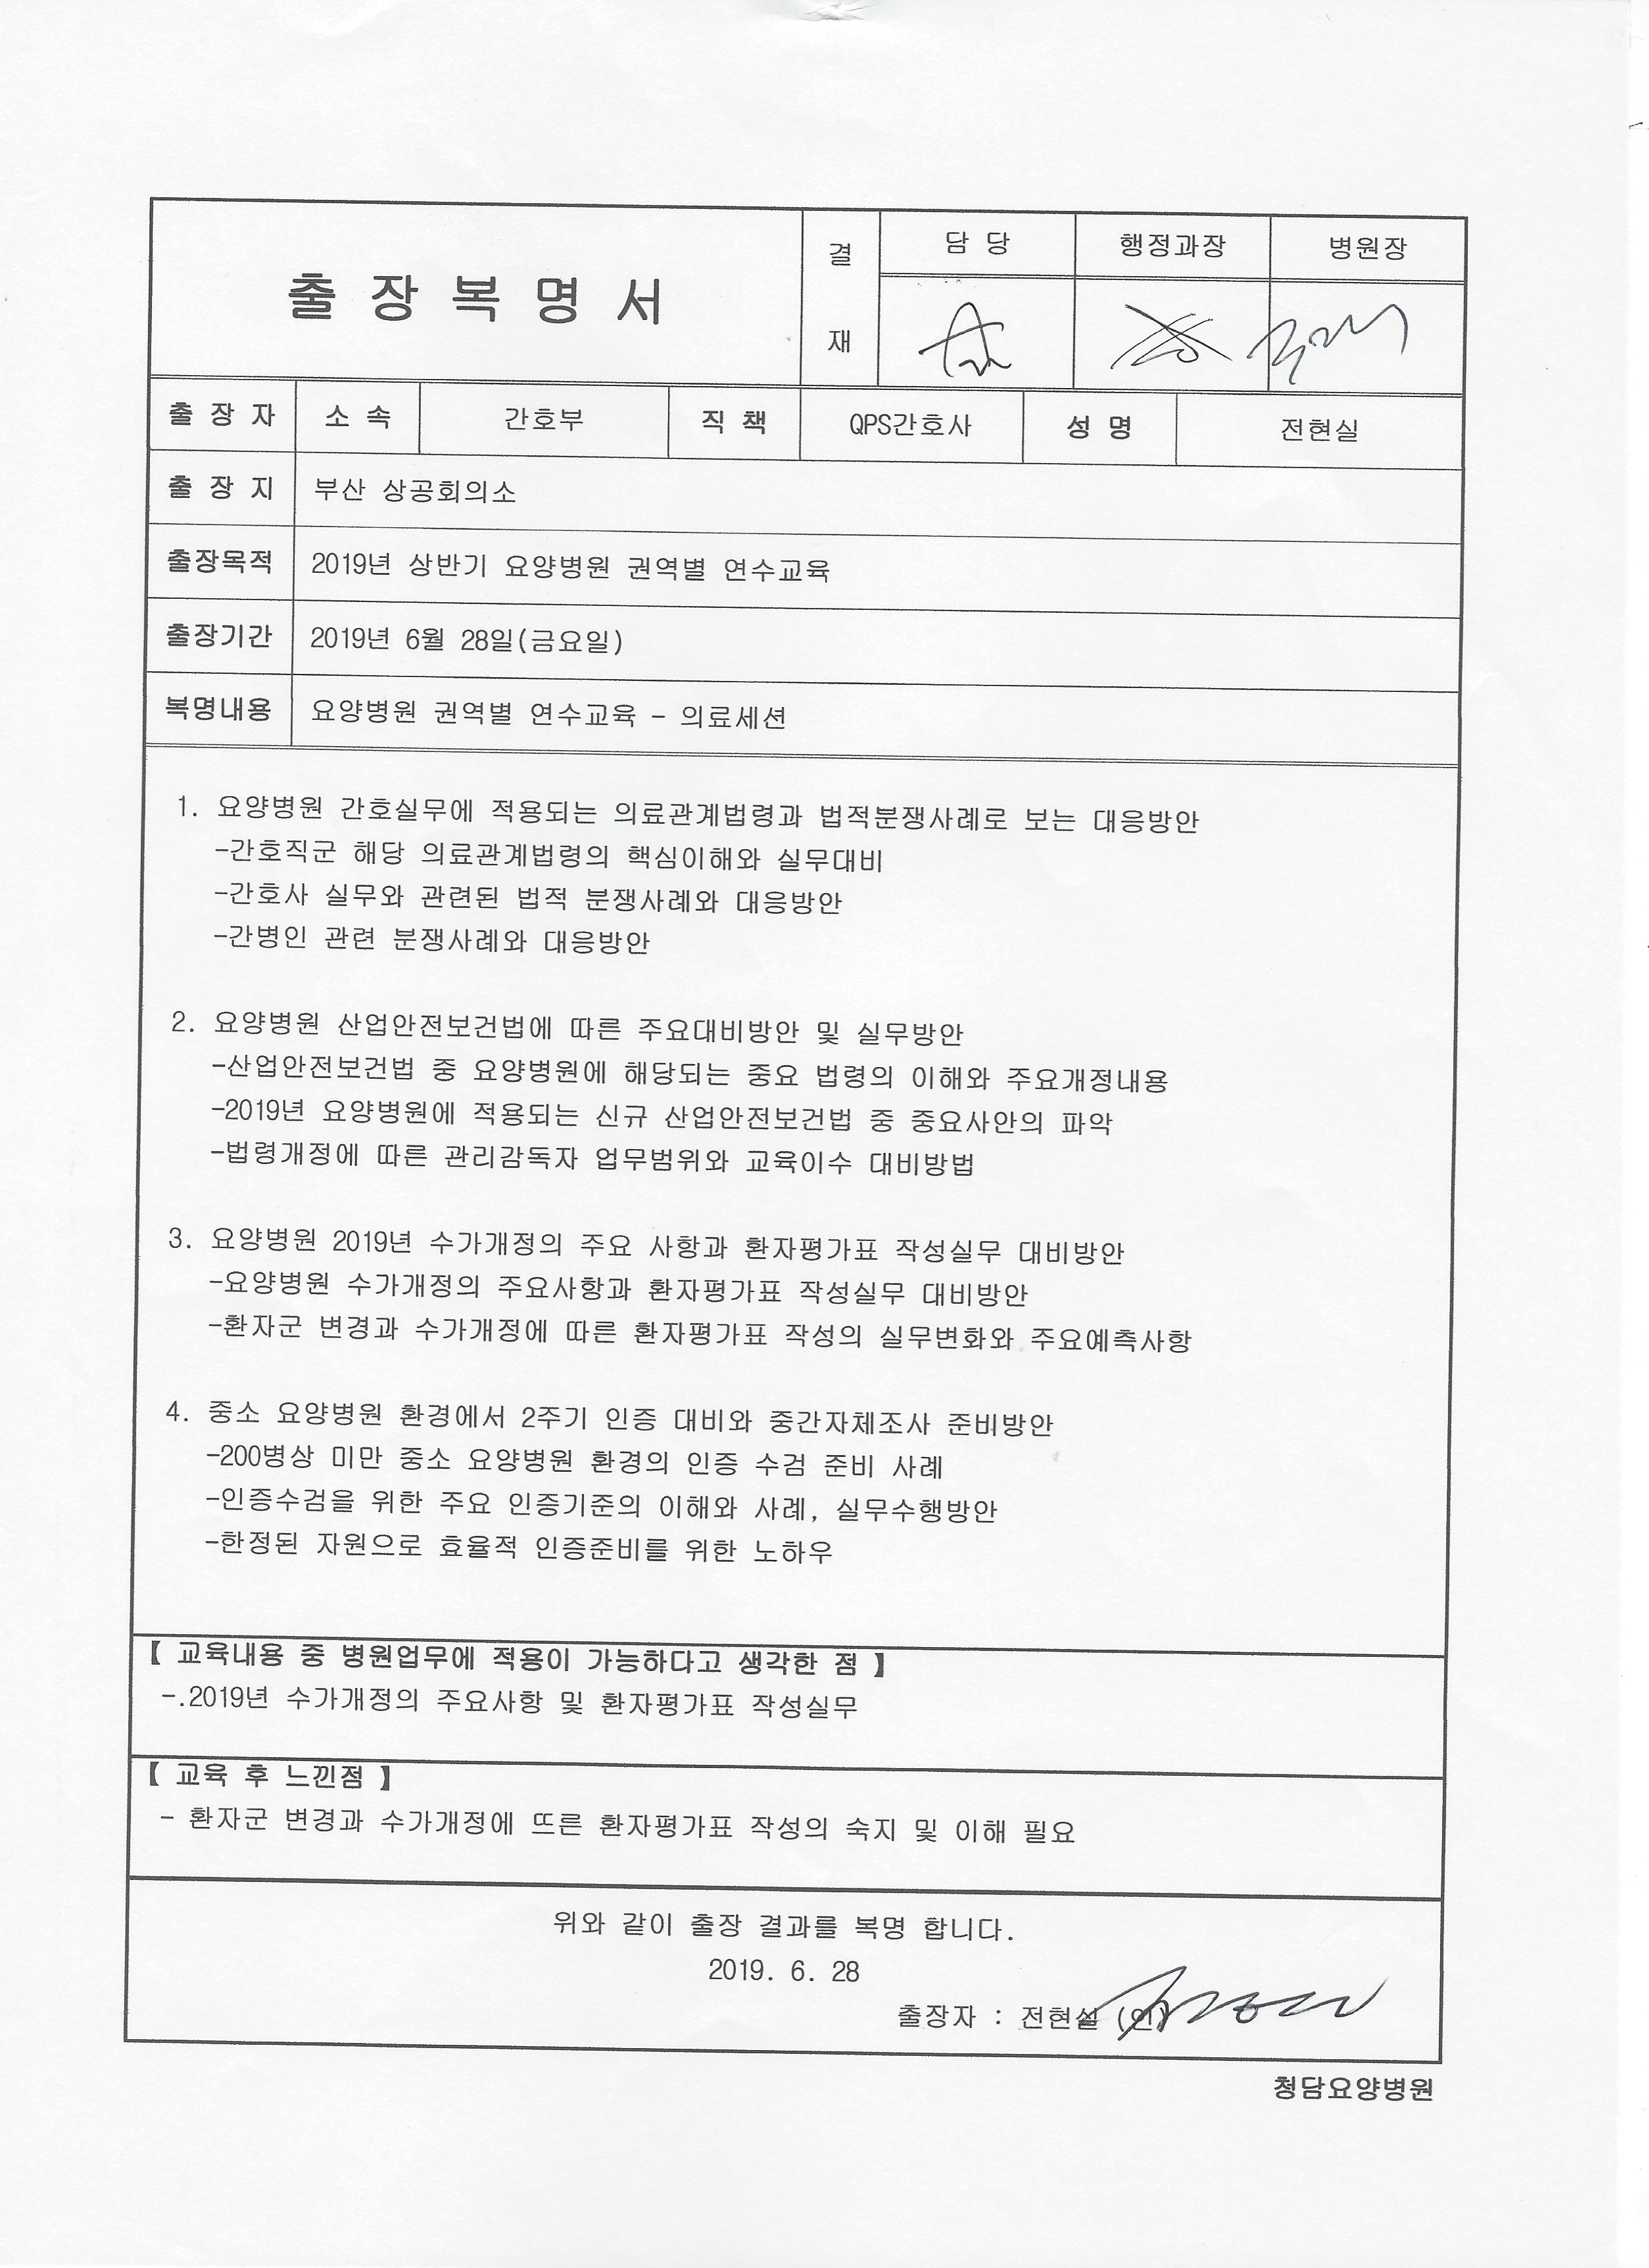 출 장 복 명 서
결 재
담 당 행정과장 병원장
출 장 자 소 속 간호부 직 책 QPS간호사 성 명 전현실
출 장 지 부산 상공회의소
출장목적 2019년 상반기 요양병원 권역별 연수교육
출장기간 2019년 6월 28일(금요일)
복명내용 요양병원 권역별 연수교육 - 의료세션
1. 요양병원 간호실무에 적용되는 의료관계법령과 법적분쟁사례로 보는 대응방안
-간호직군 해당 의료관계법령의 핵심이해와 실무대비
-간호사 실무와 관련된 법적 분쟁사례와 대응방안
-간병인 관련 분쟁사례와 대응방안
2. 요양병원 산업안전보건법에 따른 주요대비방안 및 실무방안
-산업안전보건법 중 요양병원에 해당되는 중요 법령의 이해와 주요개정내용
-2019년 요양병원에 적용되는 신규 산업안전보건법 중 중요사안의 파악
-법령개정에 따른 관리감독자 업무범위와 교육이수 대비방법
3. 요양병원 2019년 수가개정의 주요 사항과 환자평가표 작성실무 대비방안
-요양병원 수가개정의 주요사항과 환자평가표 작성실무 대비방안
-환자군 변경과 수가개정에 따른 환자평가표 작성의 실무변화와 주요예측사항
4. 중소 요양병원 환경에서 2주기 인증 대비와 중간자체조사 준비방안
-200병상 미만 중소 요양병원 환경의 인증 수검 준비 사례
-인증수검을 위한 주요 인증기준의 이해와 사례, 실무수행방안
-한정된 자원으로 효율적 인증준비를 위한 노하우
【 교육내용 중 병원업무에 적용이 가능하다고 생각한 점 】
-.2019년 수가개정의 주요사항 및 환자평가표 작성실무
【 교육 후 느낀점 】
- 환자군 변경과 수가개정에 뜨른 환자평가표 작성의 숙지 및 이해 필요
위와 같이 출장 결과를 복명 합니다.
2019. 6. 28
출장자 : 전현실 (인)
청담요양병원